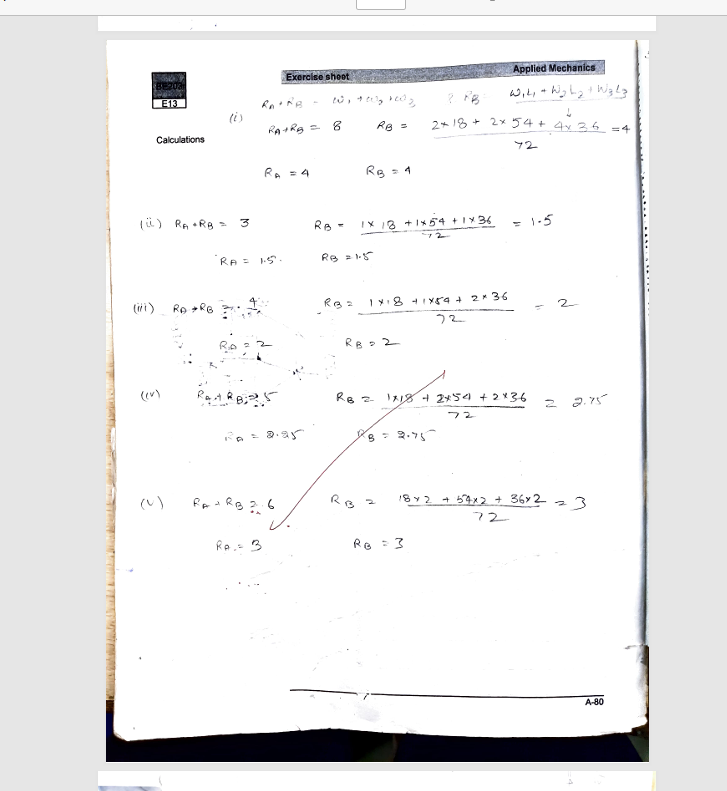 Exercise sheet
Applied Mechanics
BE202
E13
Calculations
RA + RB = W1 + W2 + W3 RB W1L1 + W2L2 + W3L3
(i) RA + RB = 8 RB = 2×18 + 2×54 + 4×36 = 4
72
RA = 4 RB = 4
(ii) RA + RB = 3 RB = 1×18 + 1×54 + 1×36 = 1.5
72
RA = 1.5. RB = 1.5
(iii) RA + RB = 4 RB = 1×18 + 1×54 + 2×36 = 2
72
RA = 2 RB = 2
(iv) RA + RB = 5 RB = 1×18 + 2×54 + 2×36 = 2.75
72
RA = 2.25 RB = 2.75
(v) RA + RB = 6 RB = 18×2 + 54×2 + 36×2 = 3
72
RA = 3 RB = 3
A-80